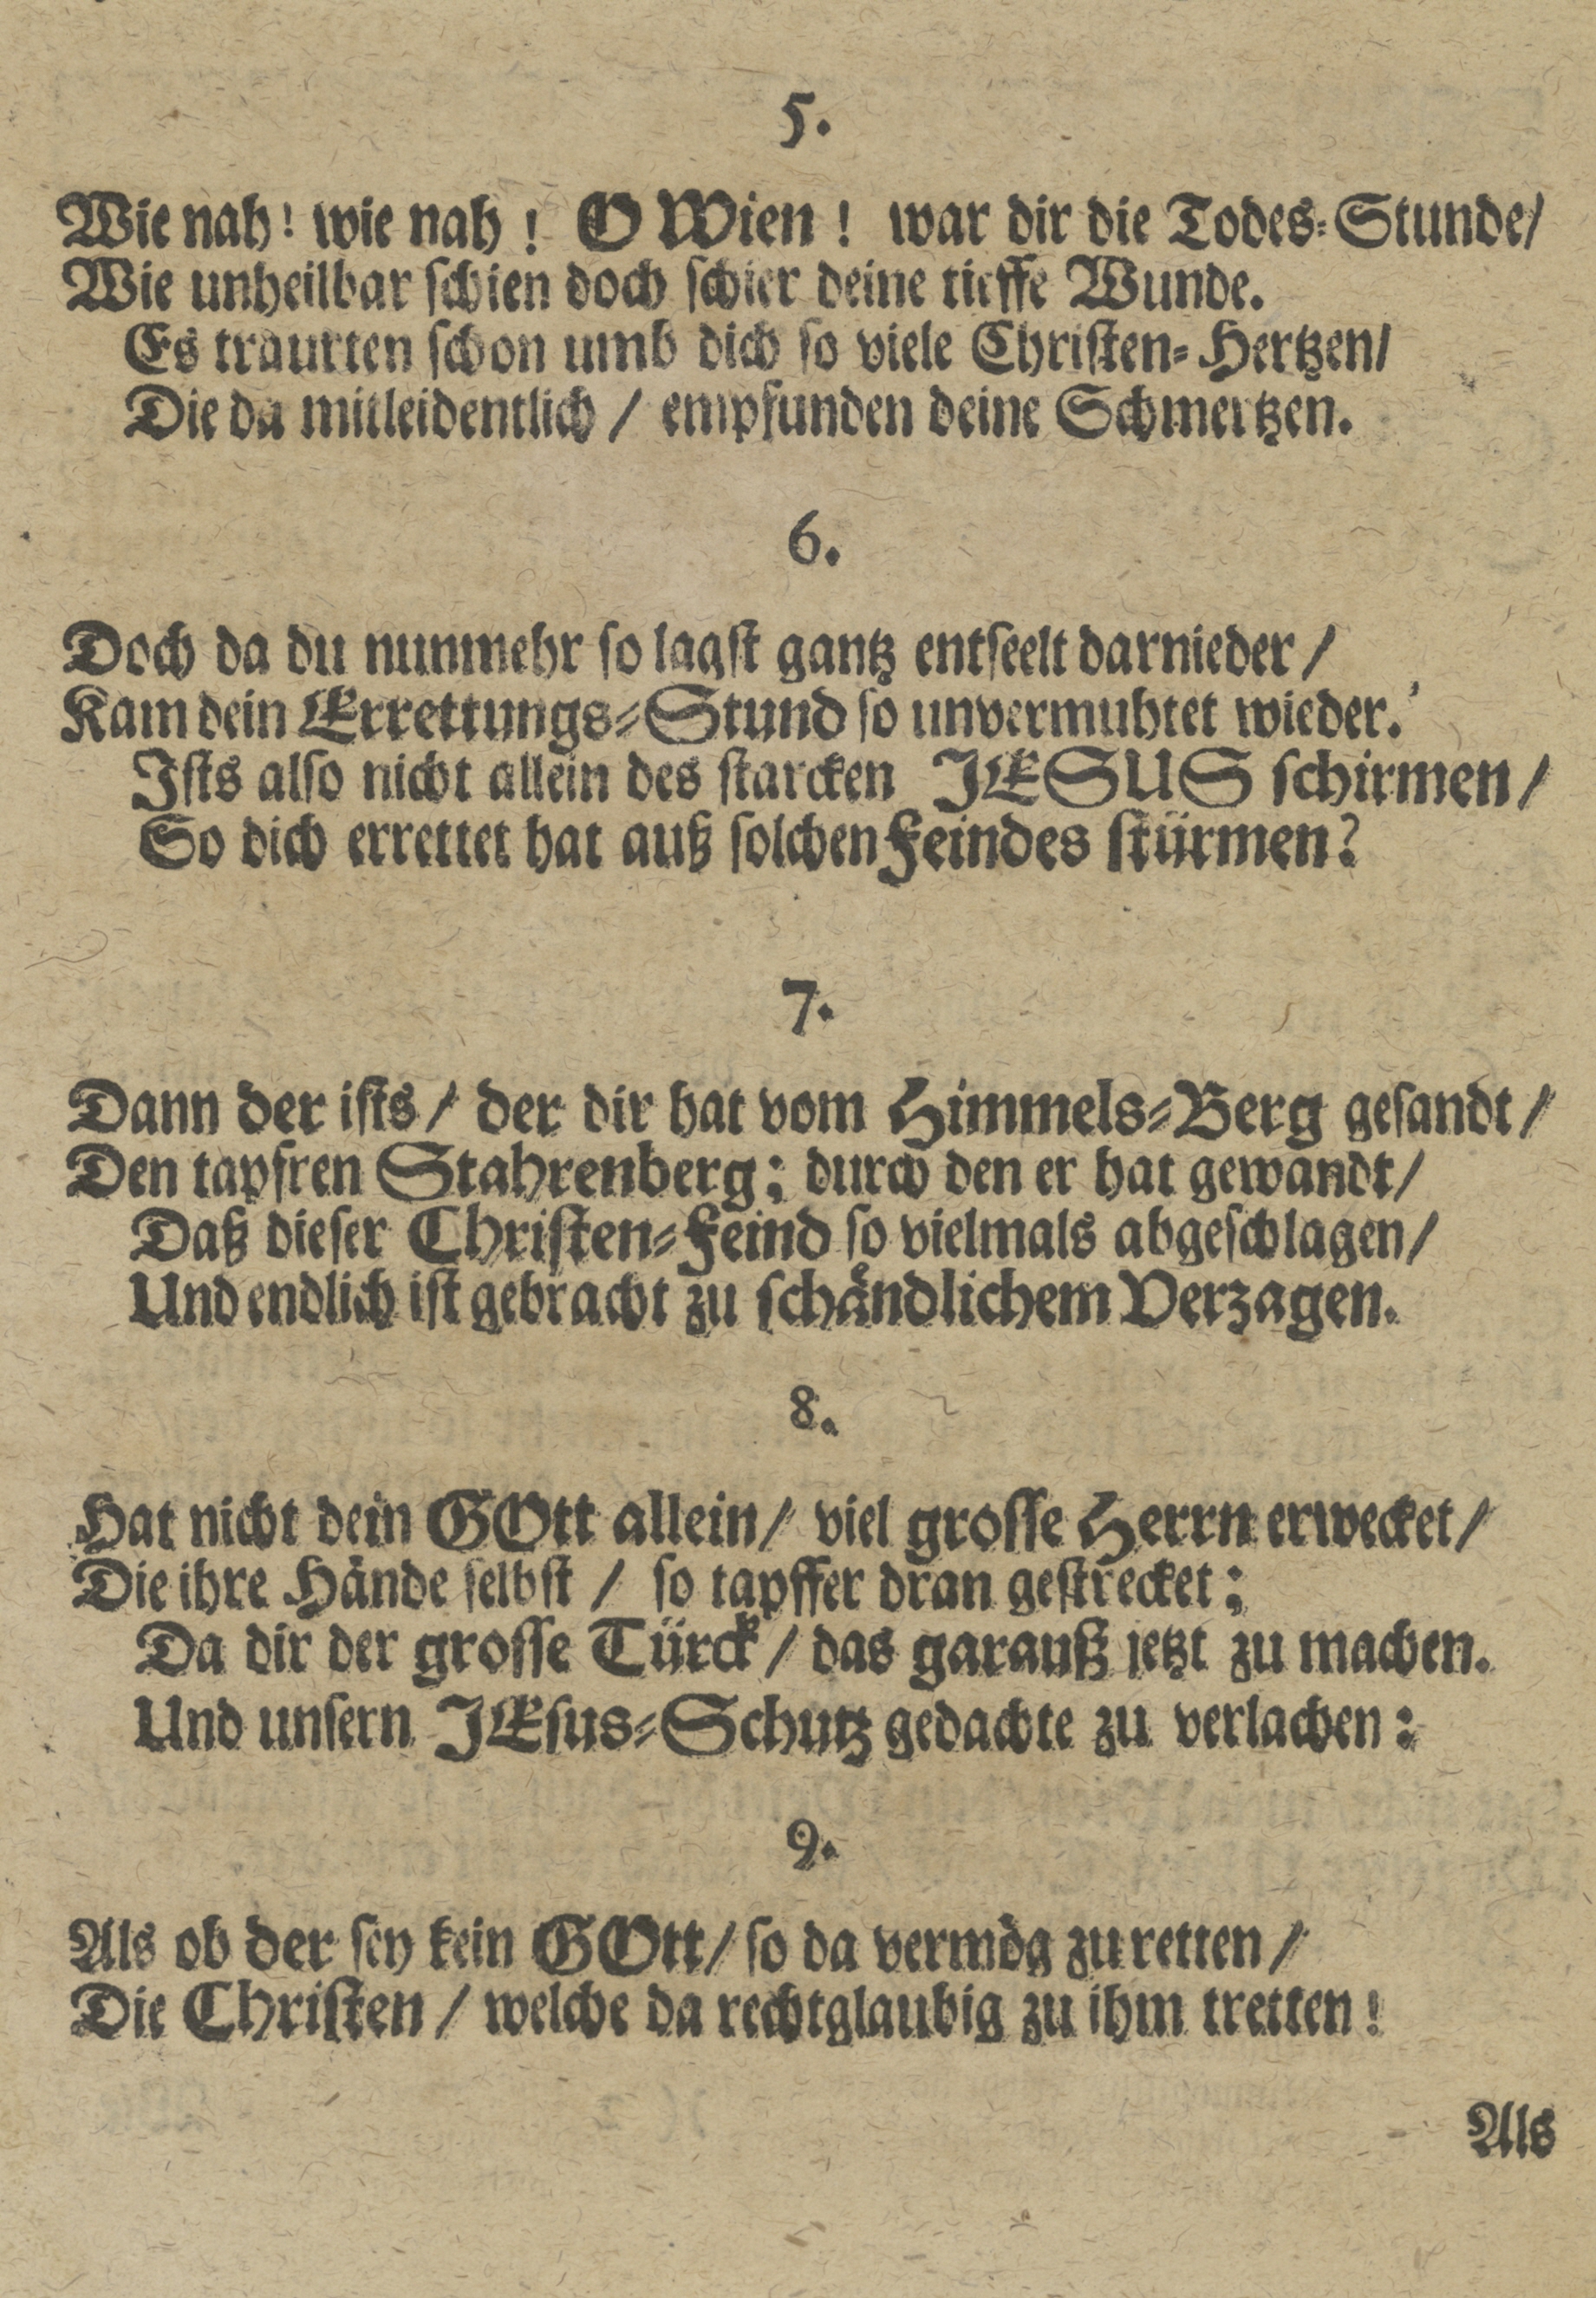 5.
Wie nah! wie nah! O Wien! war dir die Todes-Stunde/
Wie unheilbar schien doch schier deine tieffe Wunde.
Es traurten schon umb dich so viele Christen-Hertzen/
Die da mitleidentlich / empfunden deine Schmertzen.
6.
Doch da du nunmehr so lagst gantz entseelt darnieder /
Kam dein Errettungs-Stund so unvermuhtet wieder.
Ists also nicht allein des starcken JESUS schirmen /
So dich errettet hat auß solchen Feindes stürmen?
7.
Dann der ists / der dir hat vom Himmels-Berg gesandt /
Den tapfren Stahrenberg; durch den er hat gewandt /
Daß dieser Christen-Feind so vielmals abgeschlagen /
Und endlich ist gebracht zu schändlichem Verzagen.
8.
Hat nicht dein GOtt allein / viel grosse Herrn erwecket /
Die ihre Hände selbst / so tapffer dran gestrecket;
Da dir der grosse Türck / das garauß jetzt zu machen.
Und unsern JEsus-Schutz gedachte zu verlachen:
9.
Als ob der sey kein GOtt / so da vermög zu retten /
Die Christen / welche da rechtglaubig zu ihm tretten!
Als